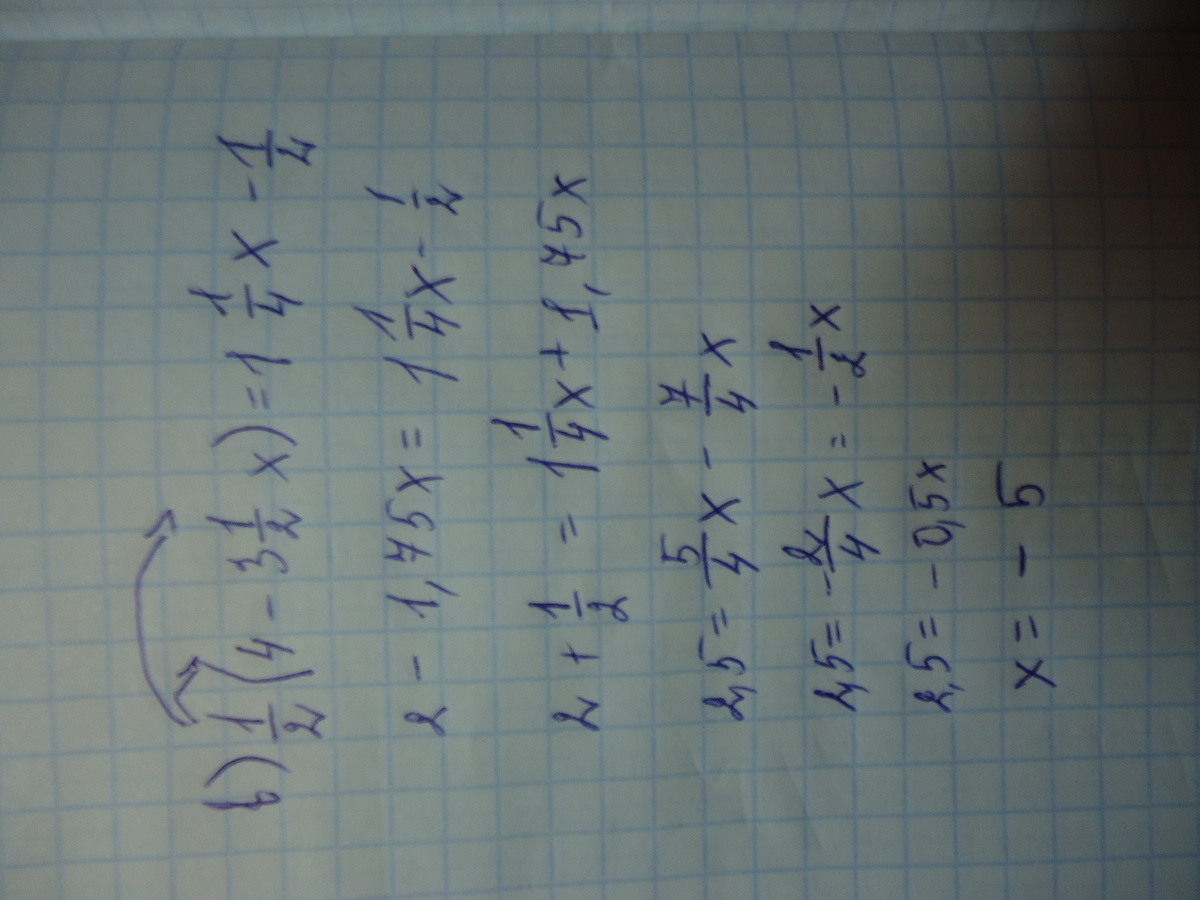 б) 1/2 (4 - 3 1/2 x) = 1 1/4 x - 1/2
2 - 1,75x = 1 1/4 x - 1/2
2 + 1/2 = 1 1/4 x + 1,75x
2,5 = 5/4 x - 7/4 x
2,5 = - 2/4 x = - 1/2 x
2,5 = - 0,5x
x = - 5